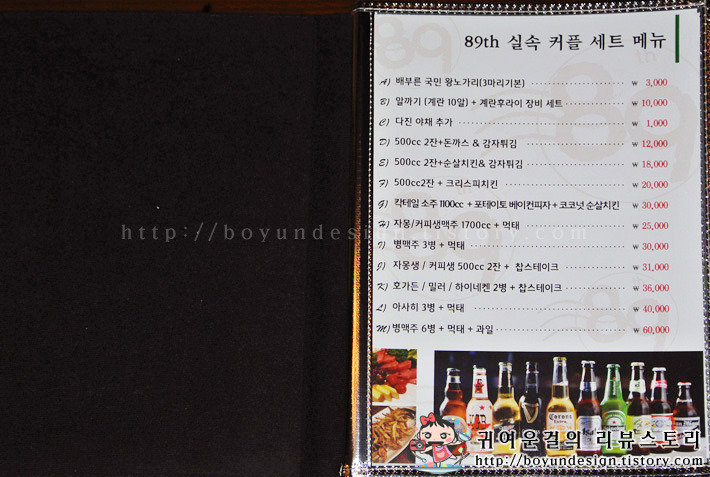 89th 실속 커플 세트 메뉴
A) 배부른 국민 왕노가리(3마리기본) ₩ 3,000
B) 알까기 (계란 10알) + 계란후라이 장비 세트 ₩ 10,000
C) 다진 야채 추가 ₩ 1,000
D) 500cc 2잔+돈까스 & 감자튀김 ₩ 12,000
E) 500cc 2잔+순살치킨& 감자튀김 ₩ 18,000
F) 500cc2잔 + 크리스피치킨 ₩ 20,000
G) 칵테일 소주 1100cc + 포테이토 베이컨피자 + 코코넛 순살치킨 ₩ 30,000
H) 자몽/커피생맥주 1700cc + 먹태 ₩ 25,000
I) 병맥주 3병 + 먹태 ₩ 30,000
J) 자몽생 / 커피생 500cc 2잔 + 찹스테이크 ₩ 31,000
K) 호가든 / 밀러 / 하이네켄 2병 + 찹스테이크 ₩ 36,000
L) 아사히 3병 + 먹태 ₩ 40,000
M) 병맥주 6병 + 먹태 + 과일 ₩ 60,000
http://boyundesign.tistory.com
Corona
귀여운걸의 리뷰스토리
http://boyundesign.tistory.com